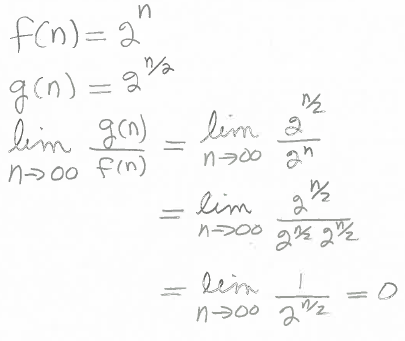 f(n) = 2^n
g(n) = 2^{n/2}
lim_{n→∞} g(n)/f(n) = lim_{n→∞} 2^{n/2}/2^n
= lim_{n→∞} 2^{n/2}/(2^{n/2} 2^{n/2})
= lim_{n→∞} 1/2^{n/2} = 0